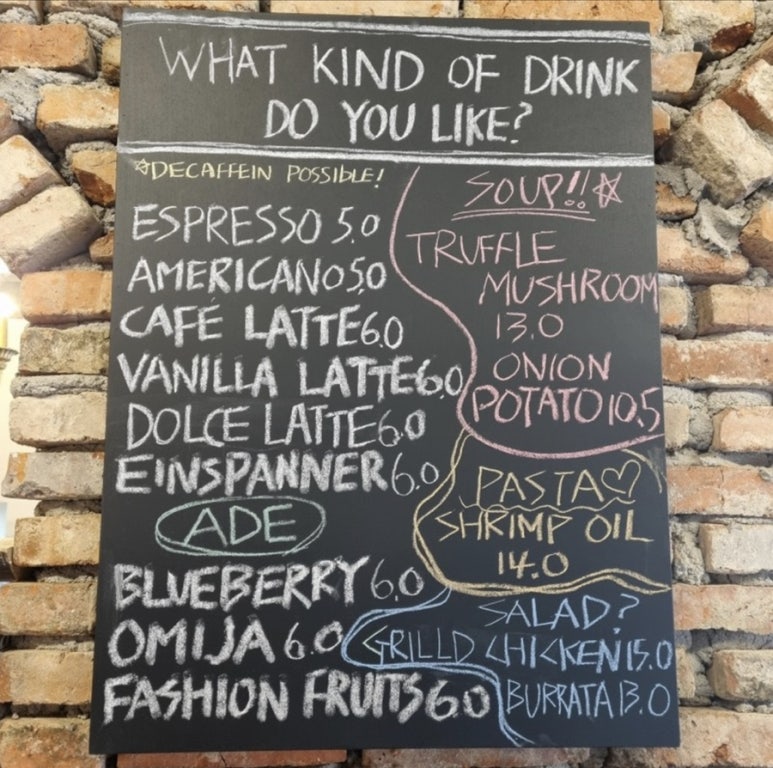 WHAT KIND OF DRINK
DO YOU LIKE?
☆DECAFFEIN POSSIBLE!
ESPRESSO 5.0
AMERICANO 5.0
CAFÉ LATTE 6.0
VANILLA LATTE 6.0
DOLCE LATTE 6.0
EINSPANNER 6.0
ADE
BLUEBERRY 6.0
OMIJA 6.0
FASHION FRUITS 6.0
SOUP!!☆
TRUFFLE
MUSHROOM
13.0
ONION
POTATO 10.5
PASTA♡
SHRIMP OIL
14.0
SALAD?
GRILLD CHICKEN 15.0
BURRATA 13.0